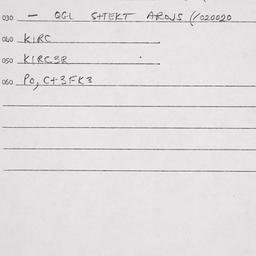 030 — QGL S+TEKT ARDNS (/020020
040 KIRC
050 KIRC3R
060 Po, C+3FK3